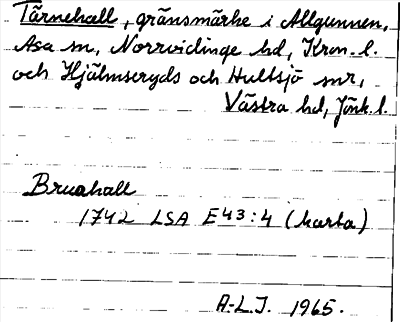 Tärnehall, gränsmärke i Allgunnen,
Asa sn, Norrvidinge hd, Kron. l.
och Hjälmseryds och Hultsjö snr,
Västra hd, Jönk. l.
Bruahall
1742 LSA E43:4 (karta)
A-L.J. 1965.